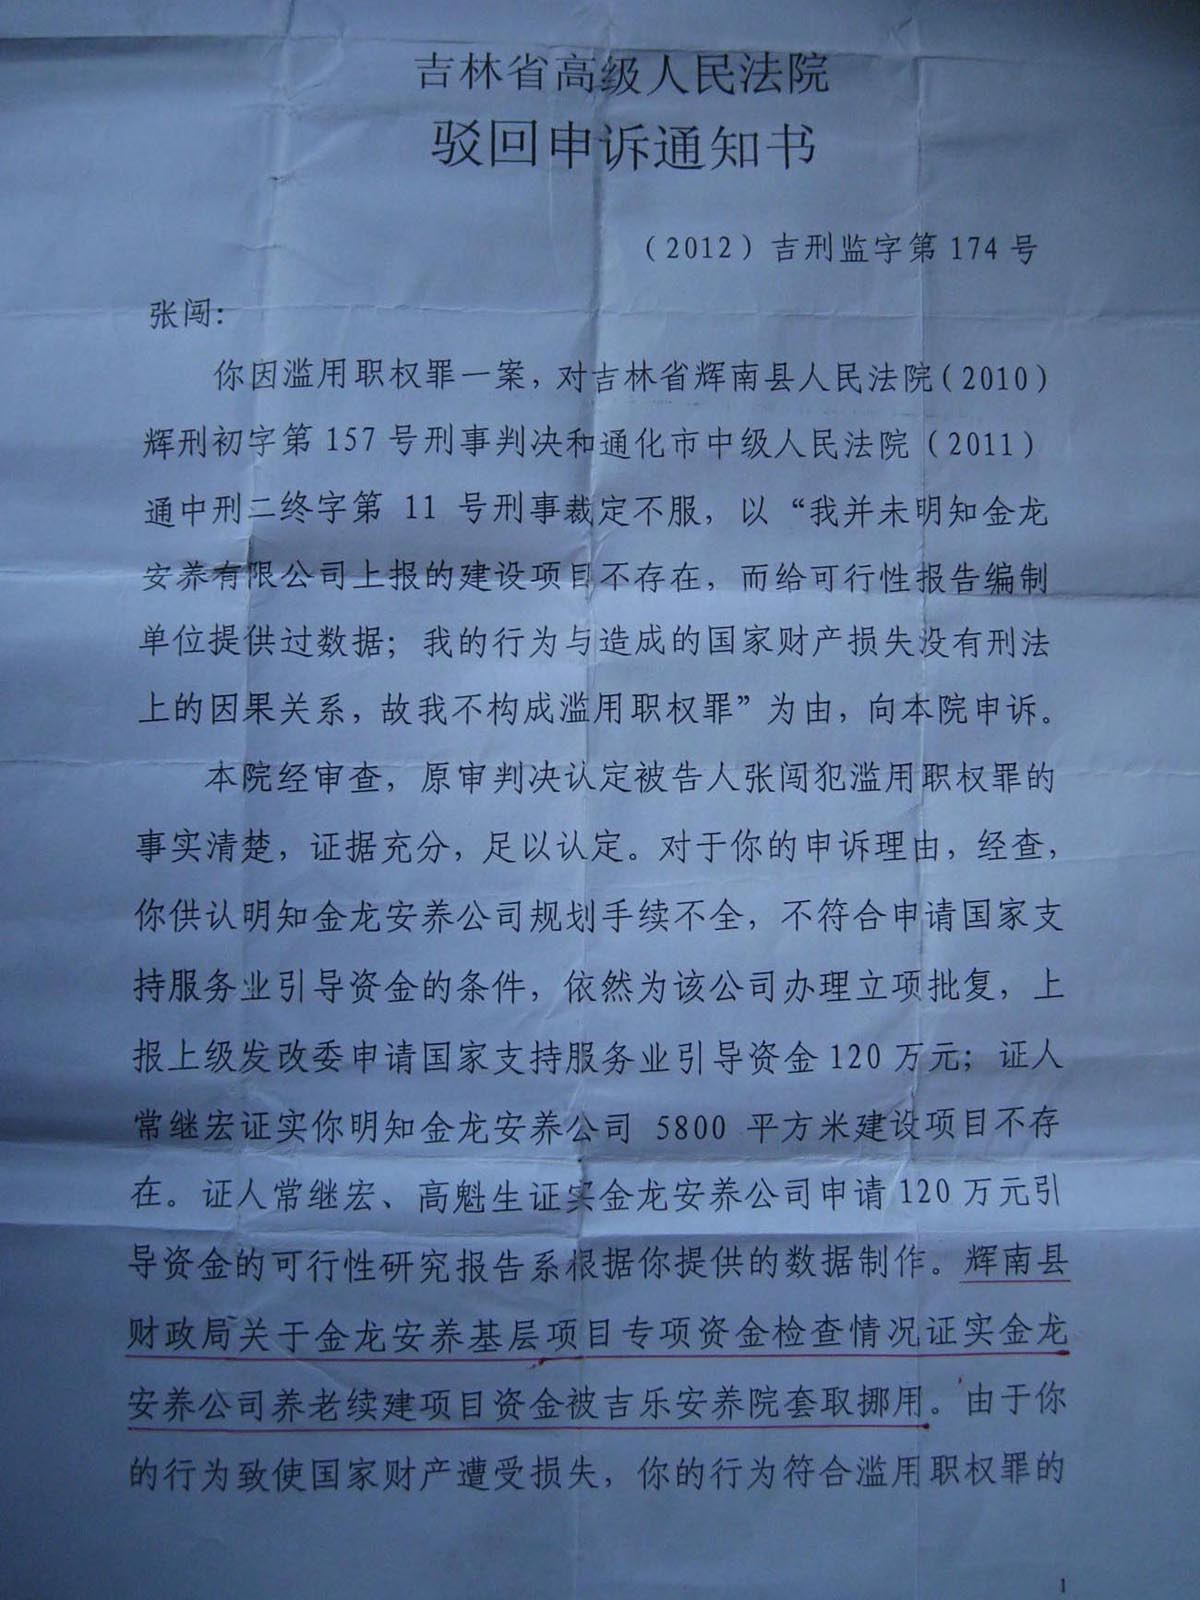 吉林省高级人民法院
驳回申诉通知书
（2012）吉刑监字第174号
张闯：
你因滥用职权罪一案，对吉林省辉南县人民法院（2010）
辉刑初字第157号刑事判决和通化市中级人民法院（2011）
通中刑二终字第 11 号刑事裁定不服，以“我并未明知金龙
安养有限公司上报的建设项目不存在，而给可行性报告编制
单位提供过数据；我的行为与造成的国家财产损失没有刑法
上的因果关系，故我不构成滥用职权罪”为由，向本院申诉。
本院经审查，原审判决认定被告人张闯犯滥用职权罪的
事实清楚，证据充分，足以认定。对于你的申诉理由，经查，
你供认明知金龙安养公司规划手续不全，不符合申请国家支
持服务业引导资金的条件，依然为该公司办理立项批复，上
报上级发改委申请国家支持服务业引导资金120万元；证人
常继宏证实你明知金龙安养公司 5800 平方米建设项目不存
在。证人常继宏、高魁生证实金龙安养公司申请120万元引
导资金的可行性研究报告系根据你提供的数据制作。辉南县
财政局关于金龙安养基层项目专项资金检查情况证实金龙
安养公司养老续建项目资金被吉乐安养院套取挪用。由于你
的行为致使国家财产遭受损失，你的行为符合滥用职权罪的
1